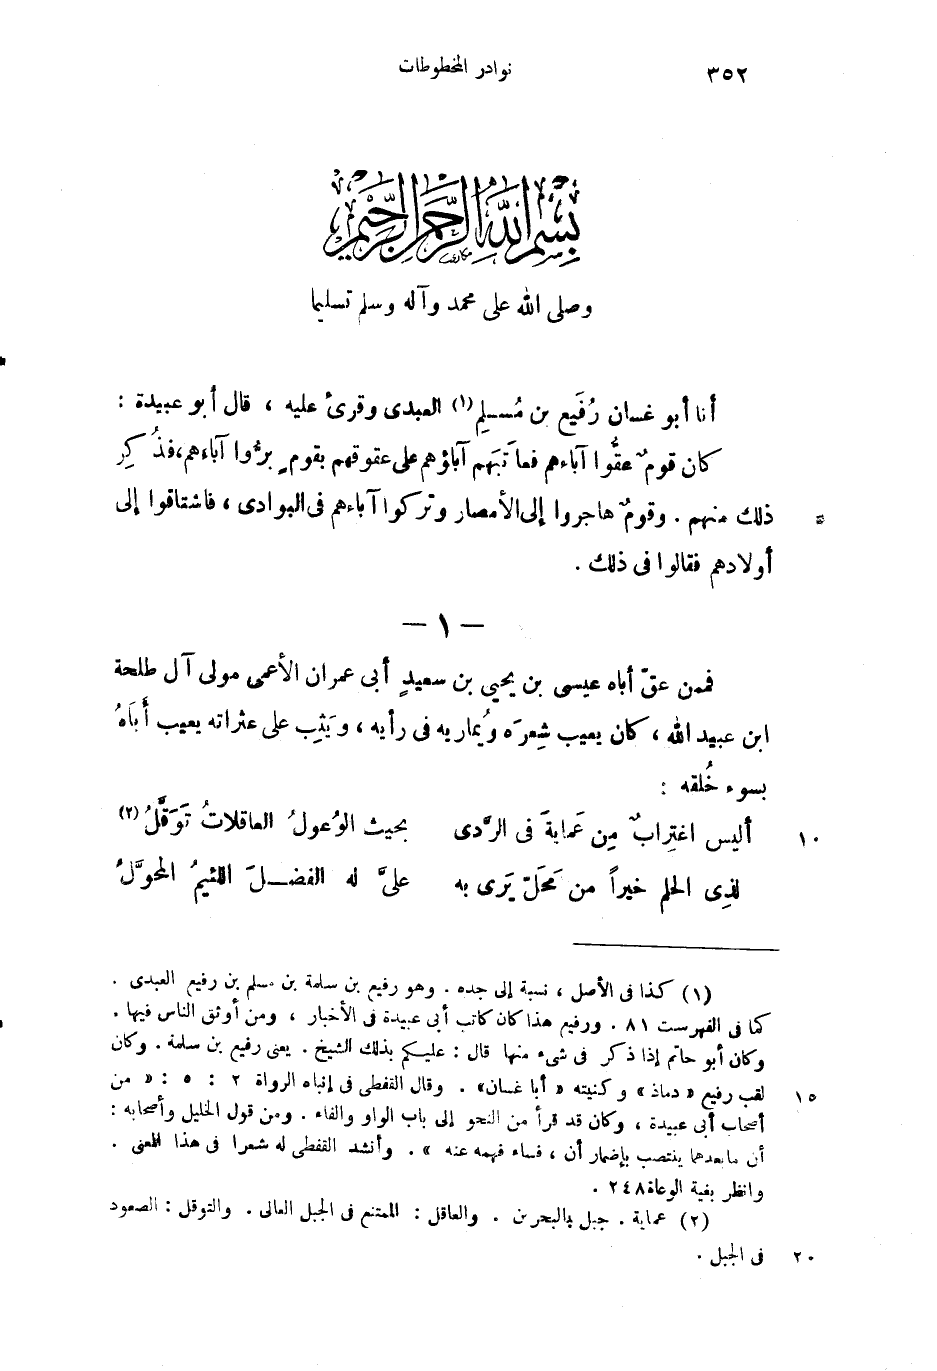 ٣٥٢ نوادر المخطوطات
بسم الله الرحمن الرحيم
وصلى الله على محمد وآله وسلم تسليما
أنا أبو غسان رُفَيع بن مُسلِم(١) العبدى وقرئ عليه ، قال أبو عبيدة :
كان قومٌ عقُّوا آباءهم فعاتَبَهم آباؤهم على عقوقهم بقومٍ برُّوا آباءهم، فذُكِر
٥ ذلك منهم . وقومٌ هاجروا إلى الأمصار وتركوا آباءهم فى البوادى ، فاشتاقوا إلى
أولادهم فقالوا فى ذلك .
— ١ —
فممن عقّ أباه عيسى بن يحيى بن سعيدٍ أبى عمران الأعمى مولى آل طلحة
ابن عبيد الله ، كان يعيب شِعرَه ويُماريه فى رأيه ، ويَثِب على عثراته يعيب أباهُ
بسوء خُلقه :
١٠ أليس اغتِرابٌ مِن عَمايةَ فى الرَّدى بحيث الوُعولُ العاقلاتُ تَوَقَّلُ(٢)
لذِى الحلم خيراً من مَحَلّ يَرى به علىَّ له الفضلَ اللئيمُ المحوَّلُ
(١) كذا فى الأصل ، نسبة إلى جده . وهو رفيع بن سلمة بن مسلم بن رفيع العبدى .
كما فى الفهرست ٨١ . ورفيع هذا كان كاتب أبى عبيدة فى الأخبار ، ومن أوثق الناس فيها .
وكان أبو حاتم إذا ذكر فى شىء منها قال : عليكم بذلك الشيخ . يعنى رفيع بن سلمة . وكان
١٥ لقب رفيع « دماذ » وكنيته « أبا غسان» . وقال القفطى فى إنباه الرواة ٢ : ٥ : « من
أصحاب أبى عبيدة ، وكان قد قرأ من النحو إلى باب الواو والفاء . ومن قول الخليل وأصحابه :
أن مابعدهما ينتصب بإضمار أن ، فساء فهمه عنه » . وأنشد القفطى له شعرا فى هذا المعنى .
وانظر بغية الوعاة ٢٤٨ .
(٢) عماية . جبل بالبحرين . والعاقل : الممتنع فى الجبل العالى . والتوقل : الصعود
٢٠ فى الجبل .